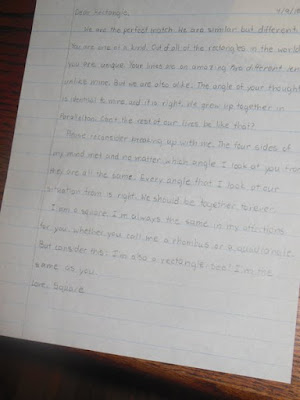 Dear Rectangle,
We are the perfect match. We are similar but different.
You are one of a kind. Out of all of the rectangles in the world
you are unique. Your lines are so amazing too different
unlike mine. But we are also alike. The angle of your thought
is identical to mine and it's right. We grew up together in
parallelism. Can't the rest of our lives be like that?
Please reconsider breaking up with me. The four sides of
my mind met and no matter which angle I look at you from
they are all the same. Every angle that I look at our
situation from is right. We should be together forever.
I am a square. I'm always the same in my affections
for you, whether you call me a rhombus or a quadrilateral.
But consider this: I'm also a rectangle too! I'm the
same as you.
Love, Square